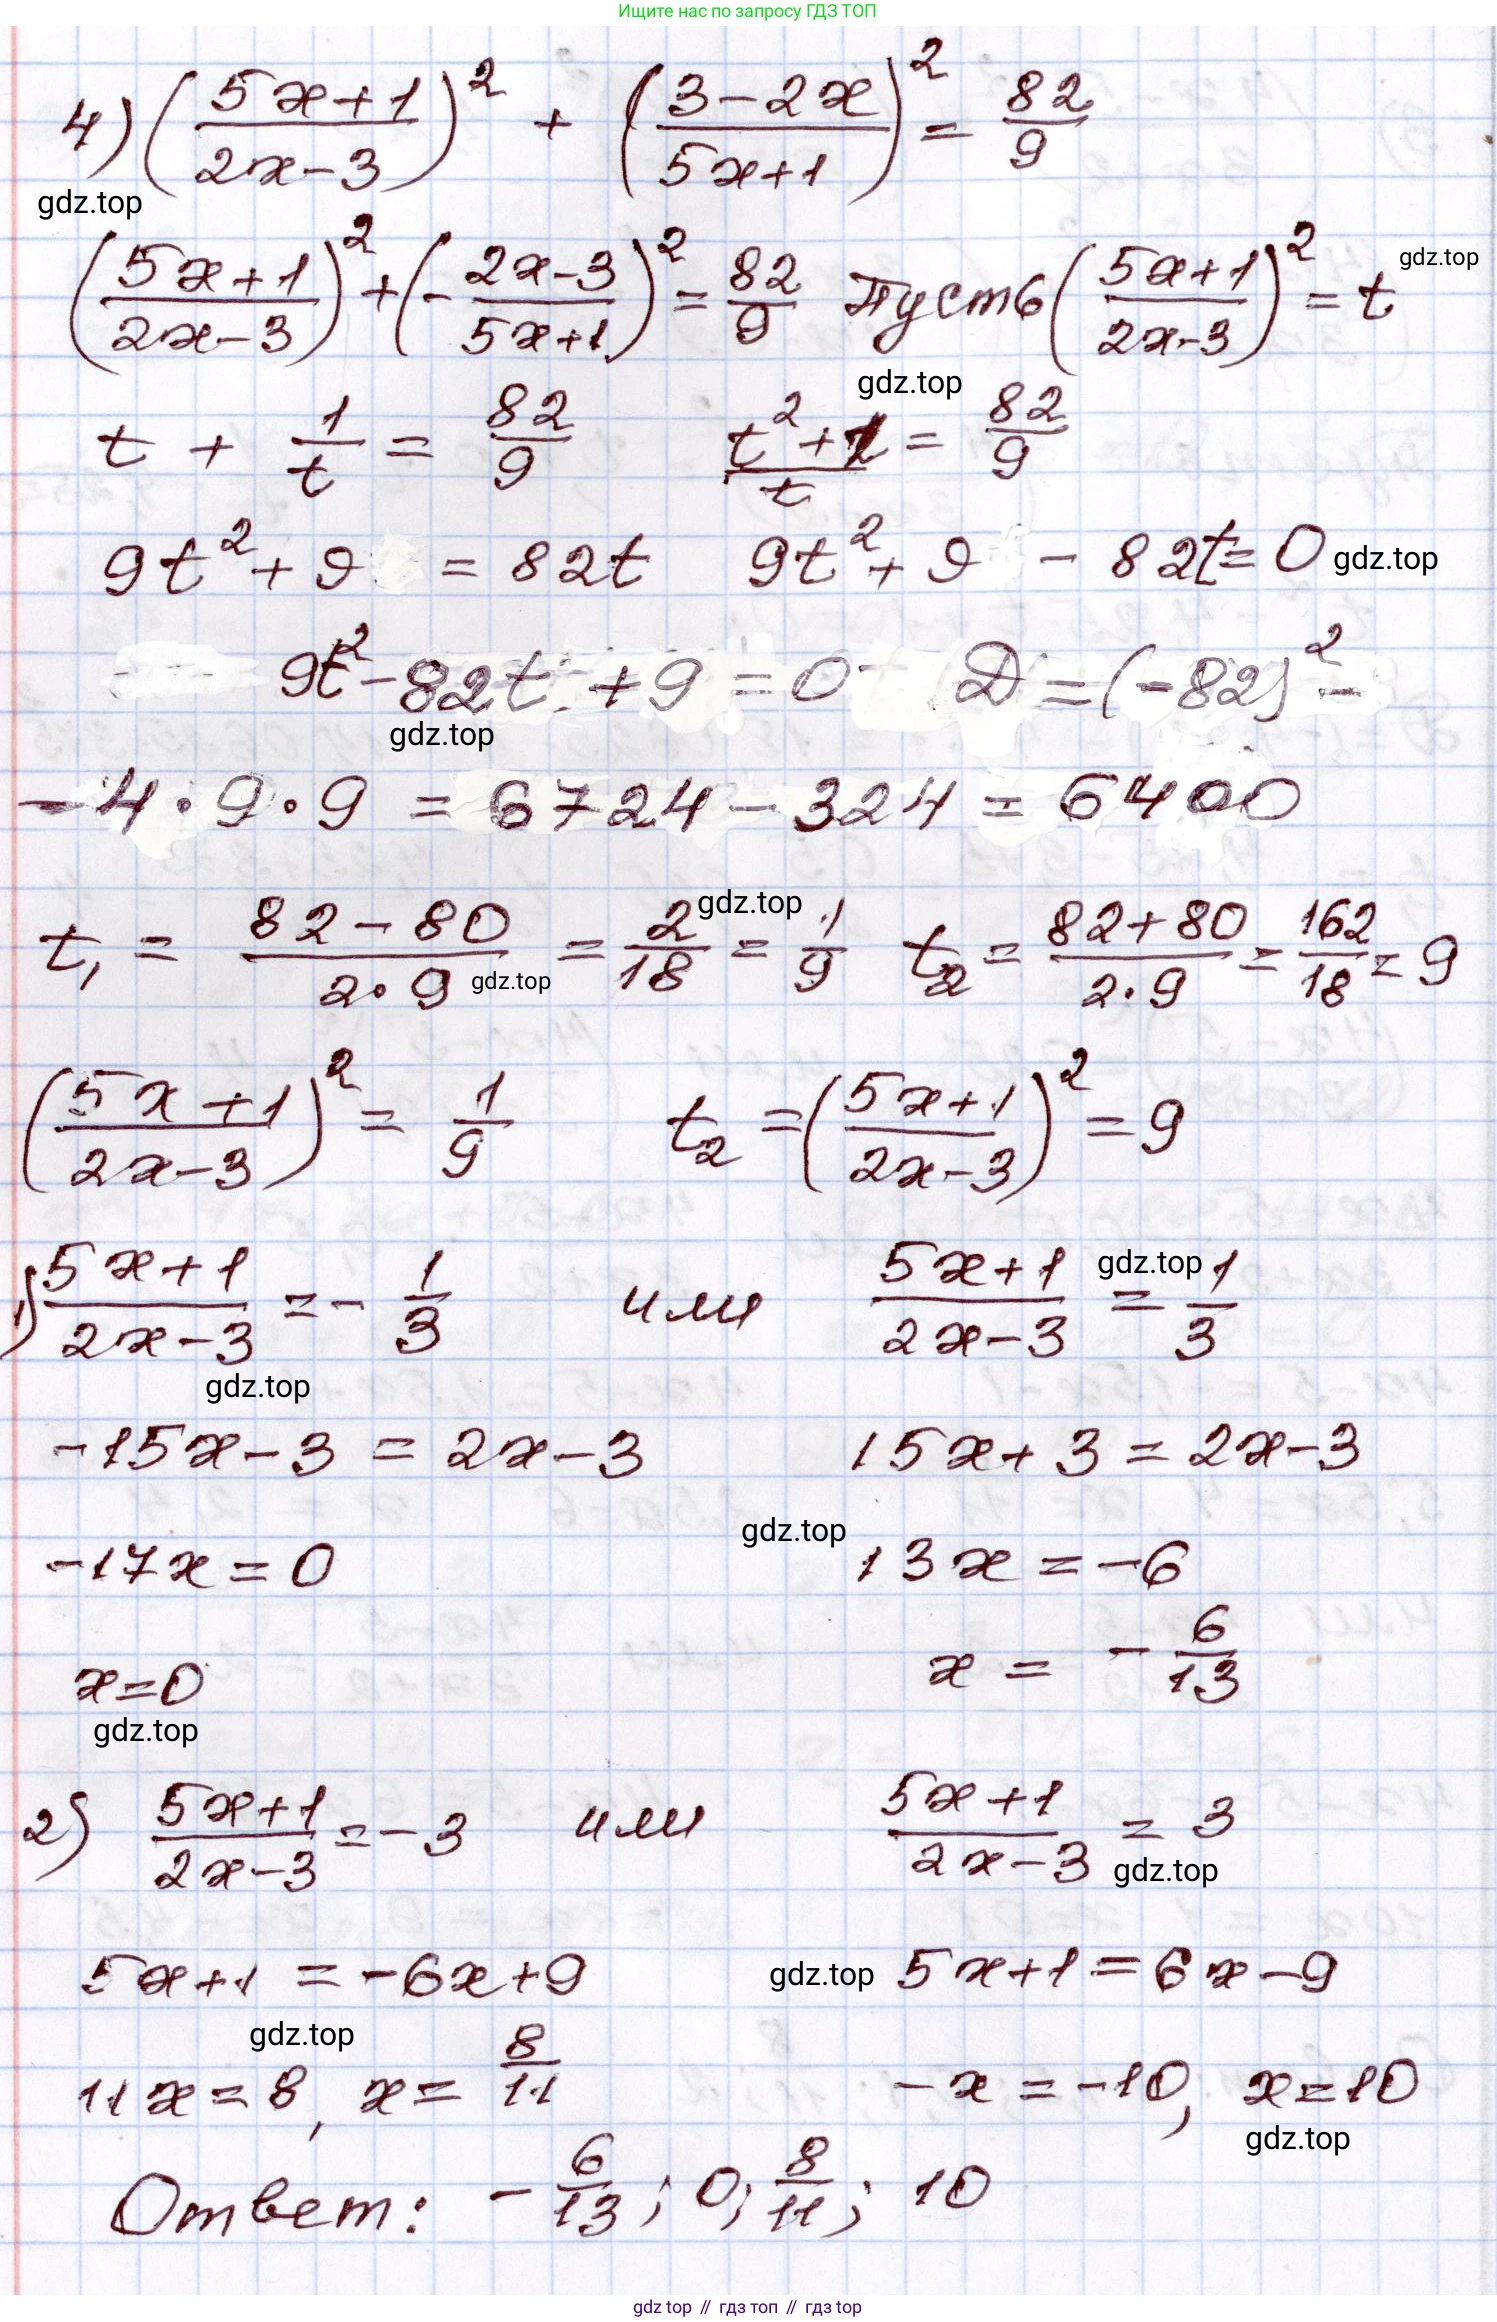 Ищите нас по запросу ГДЗ ТОП
4) ((5x+1)/(2x-3))² + ((3-2x)/(5x+1))² = 82/9
gdz.top
((5x+1)/(2x-3))² + (-(2x-3)/(5x+1))² = 82/9 Пусть ((5x+1)/(2x-3))² = t
gdz.top
gdz.top
t + 1/t = 82/9 (t²+1)/t = 82/9
9t² + 9 = 82t 9t² + 9 - 82t = 0
gdz.top
9t² - 82t + 9 = 0 D = (-82)² -
gdz.top
- 4·9·9 = 6724 - 324 = 6400
gdz.top
t₁ = (82-80)/(2·9) = 2/18 = 1/9 t₂ = (82+80)/(2·9) = 162/18 = 9
gdz.top
((5x+1)/(2x-3))² = 1/9 t₂ = ((5x+1)/(2x-3))² = 9
1) (5x+1)/(2x-3) = -1/3 или (5x+1)/(2x-3) = 1/3
gdz.top
gdz.top
-15x-3 = 2x-3 15x+3 = 2x-3
gdz.top
-17x = 0 13x = -6
x=0 x = -6/13
gdz.top
2) (5x+1)/(2x-3) = -3 или (5x+1)/(2x-3) = 3
gdz.top
5x+1 = -6x+9 gdz.top 5x+1 = 6x-9
gdz.top
11x = 8, x = 8/11 -x = -10, x=10
gdz.top
Ответ: -6/13; 0; 8/11; 10
gdz top // гдз топ // гдз top